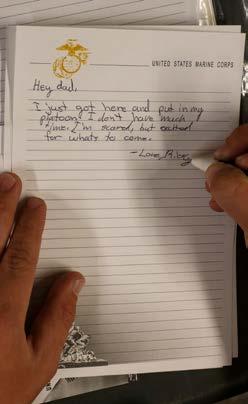 UNITED STATES MARINE CORPS
Hey dad,
I just got here and put in my
platoon. I don't have much
time. I'm scared, but excited
for whats to come.
-Love, Riley